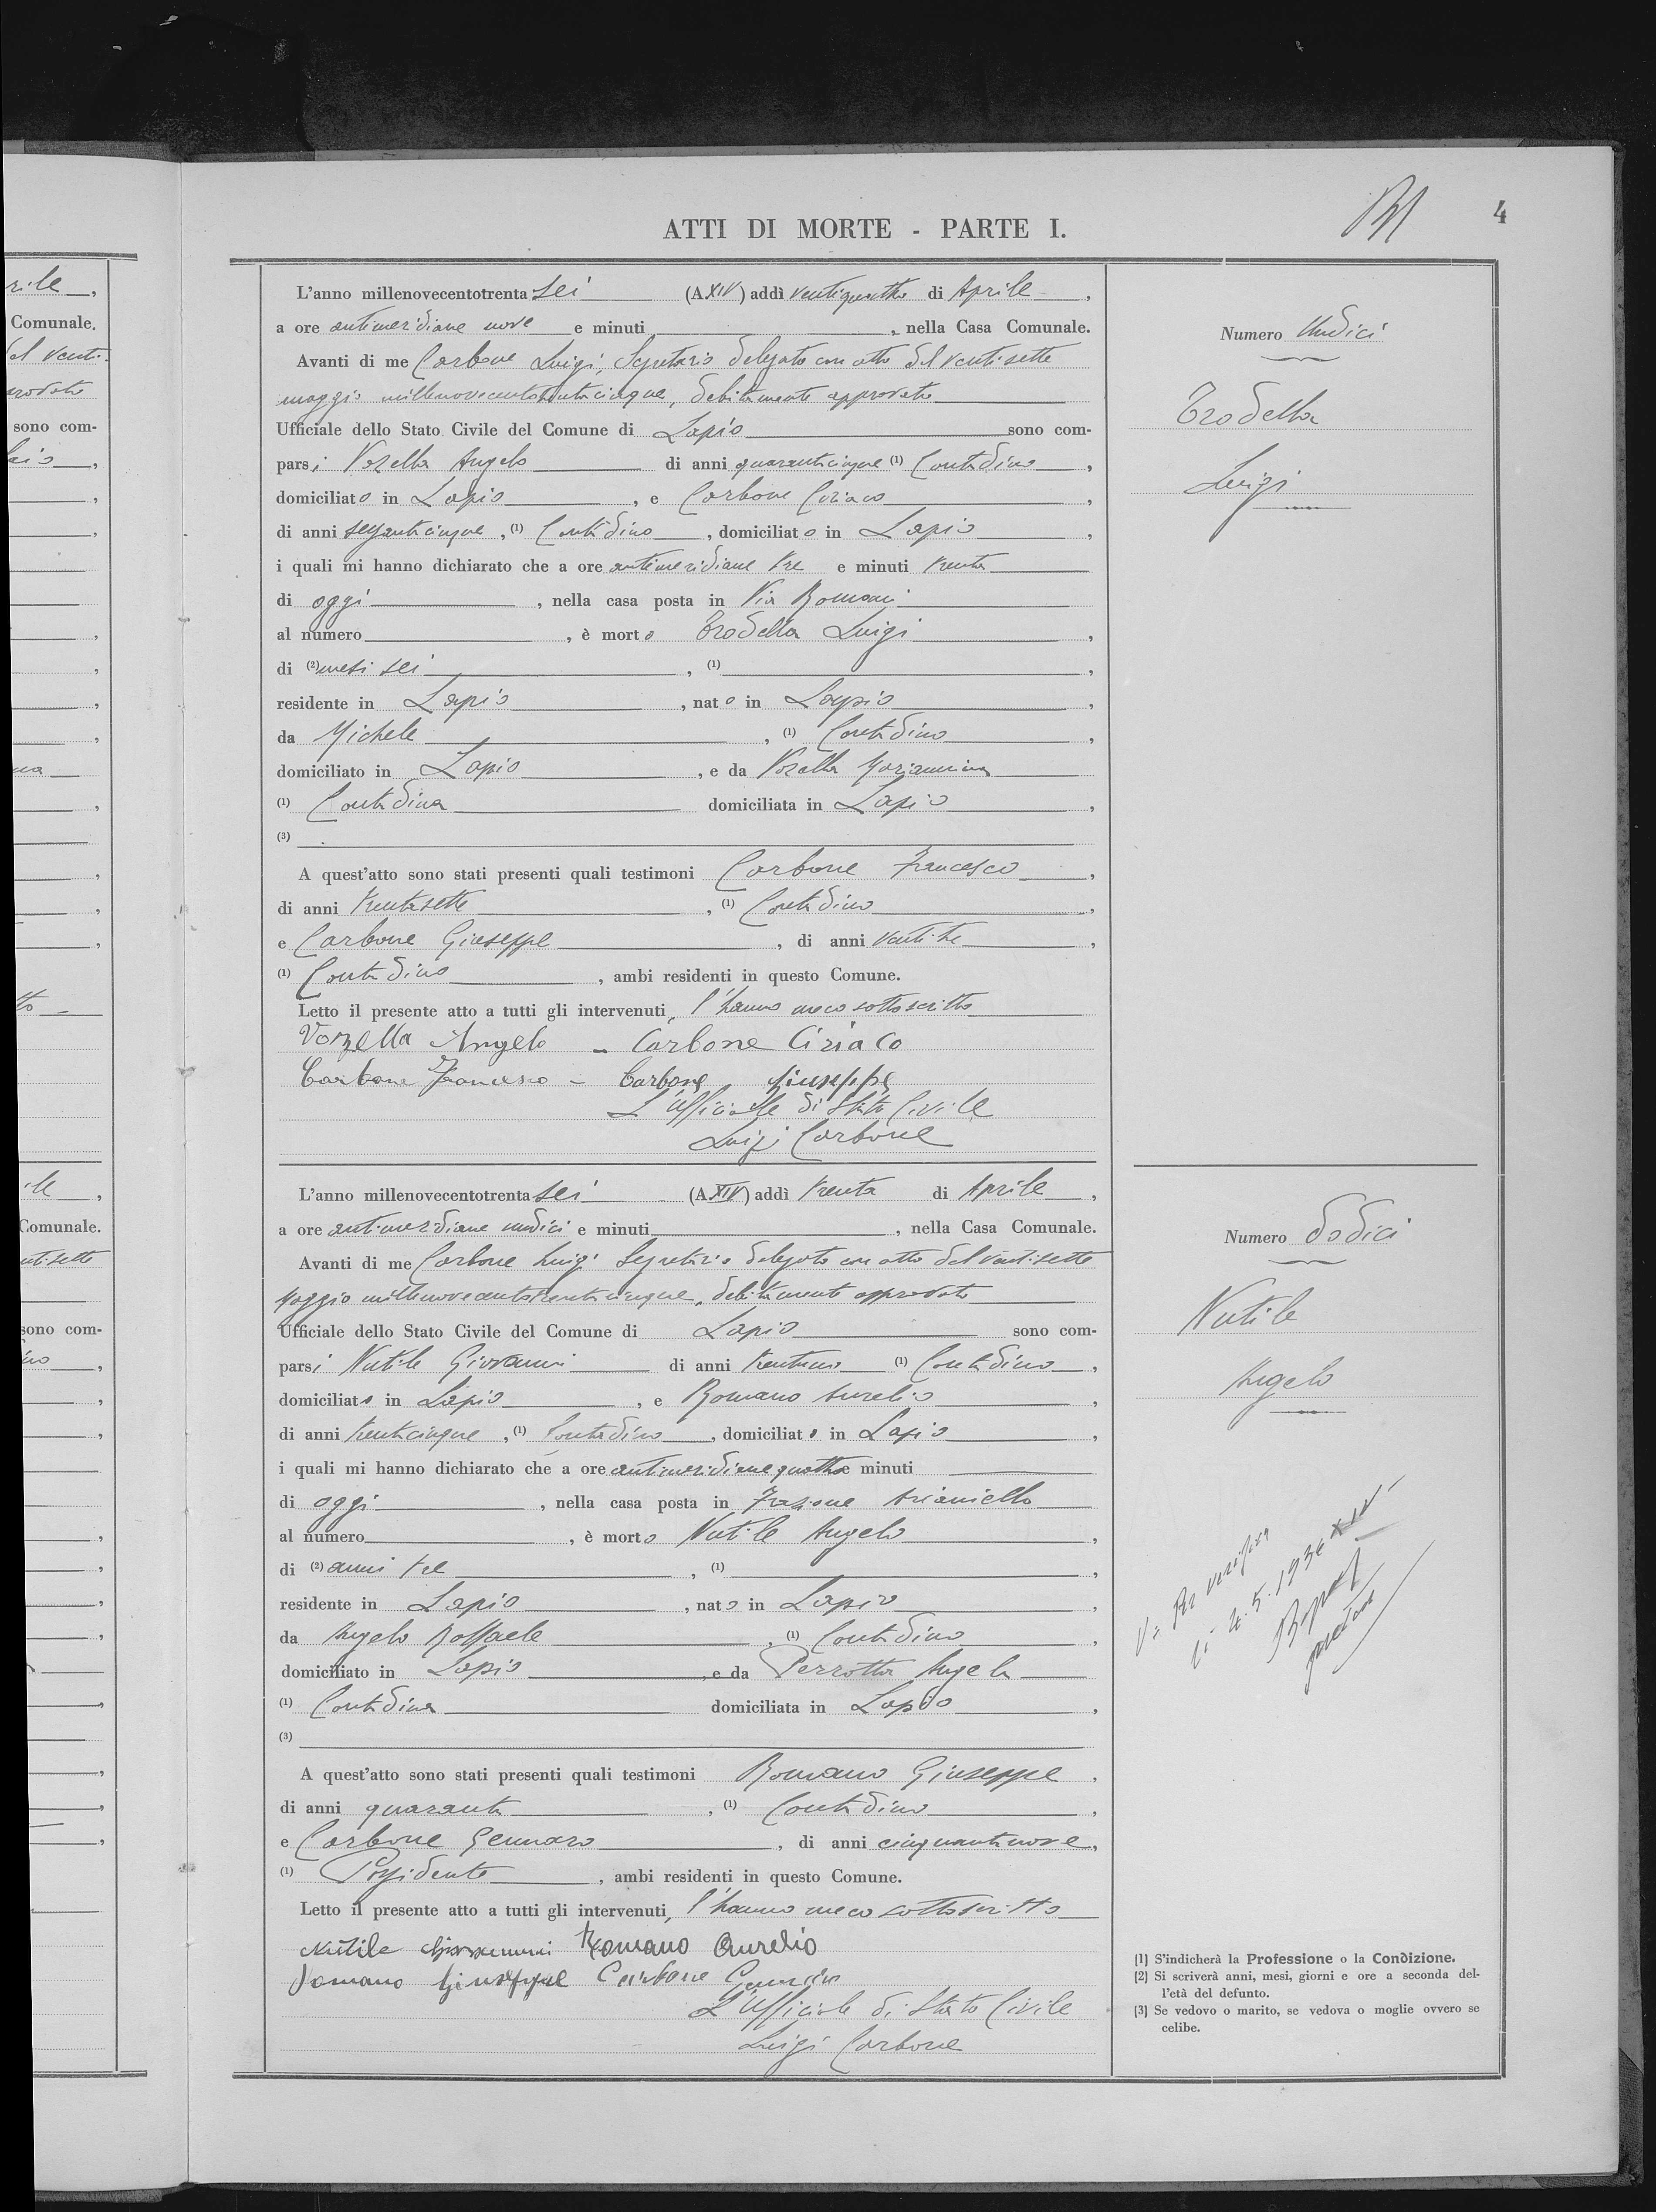 rile,
Comunale.
del venti-
provato
sono com-
ATTI DI MORTE - PARTE I.
4
L'anno millenovecentotrenta sei (A XIV) addì ventiquattro di Aprile,
a ore antimeridiane nove e minuti , nella Casa Comunale.
Avanti di me Carbone Luigi, Segretario delegato con atto del ventisette
maggio millenovecentotrentacinque, debitamente approvato
Ufficiale dello Stato Civile del Comune di Lapio sono com-
parsi Vozella Angelo di anni quarantacinque (1) Contadino,
domiciliato in Lapio, e Carbone Ciriaco,
di anni sessantacinque, (1) Contadino, domiciliato in Lapio,
i quali mi hanno dichiarato che a ore antimeridiane tre e minuti trenta
di oggi, nella casa posta in Via Romani
al numero , è morto Trodella Luigi,
di (2) mesi sei, (1) ,
residente in Lapio, nato in Lapio,
da Michele, (1) Contadino,
domiciliato in Lapio, e da Vozella Mariannina
(1) Contadina domiciliata in Lapio,
(3)
A quest'atto sono stati presenti quali testimoni Carbone Francesco,
di anni trentasette, (1) Contadino,
e Carbone Giuseppe, di anni ventitre,
(1) Contadino, ambi residenti in questo Comune.
Letto il presente atto a tutti gli intervenuti, l'hanno meco sottoscritto
Vozella Angelo - Carbone Ciriaco
Carbone Francesco - Carbone Giuseppe
L'Ufficiale di Stato Civile
Luigi Carbone
Numero Undici
Trodella
Luigi
Comunale.
ventisette
sono com-
L'anno millenovecentotrenta sei (A XIV) addì trenta di Aprile,
a ore antimeridiane undici e minuti , nella Casa Comunale.
Avanti di me Carbone Luigi Segretario delegato con atto del ventisette
Maggio millenovecentotrentacinque, debitamente approvato
Ufficiale dello Stato Civile del Comune di Lapio sono com-
parsi Nutile Giovanni di anni trentuno (1) Contadino,
domiciliato in Lapio, e Romano Aurelio,
di anni trentacinque, (1) Contadino, domiciliato in Lapio,
i quali mi hanno dichiarato che a ore antimeridiane quattro e minuti
di oggi, nella casa posta in Frazione Arianiello
al numero , è morto Nutile Angelo,
di (2) anni tre, (1) ,
residente in Lapio, nato in Lapio,
da Angelo Raffaele, (1) Contadino,
domiciliato in Lapio, e da Perrotta Angela
(1) Contadina domiciliata in Lapio,
(3)
A quest'atto sono stati presenti quali testimoni Romano Giuseppe,
di anni quaranta, (1) Contadino,
e Carbone Gennaro, di anni cinquantanove,
(1) Possidente, ambi residenti in questo Comune.
Letto il presente atto a tutti gli intervenuti, l'hanno meco sottoscritto
Nutile Giovanni Romano Aurelio
Romano Giuseppe Carbone
L'Ufficiale di Stato Civile
Luigi Carbone
Numero Dodici
Nutile
Angelo
V= Per verifica
5. 1936 XIV
[1] S'indicherà la Professione o la Condizione.
[2] Si scriverà anni, mesi, giorni e ore a seconda del-
l'età del defunto.
[3] Se vedovo o marito, se vedova o moglie ovvero se
celibe.